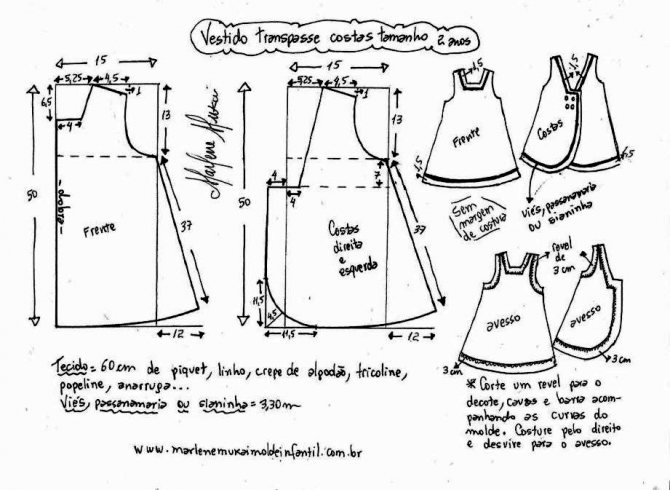 Vestido transpasse costas tamanho 2 anos
15
5,25 4,5
1
6,5
4
13
50
dobra
Frente
37
12
Marlene Mukai
15
5,25 4,5
1
13
7
4
4
50
Costas
direita
e
esquerda
37
11,5
4,5
11,5
12
1,5
Frente
1,5
1,5
Costas
1,5
viés, passanamaria
ou sianinha
Sem
margem
de costura
revel
de
3 cm
avesso
3 cm
avesso
3 cm
Tecido = 60 cm de piquet, linho, crepe de algodão, tricoline,
popeline, anarruga...
Viés, passanamaria ou sianinha = 3,30m
* Corte um revel para o
decote, cavas e barra acom-
panhando as curvas do
molde. Costure pelo direito
e desvire para o avesso.
www.marlenemukaimoldeinfantil.com.br